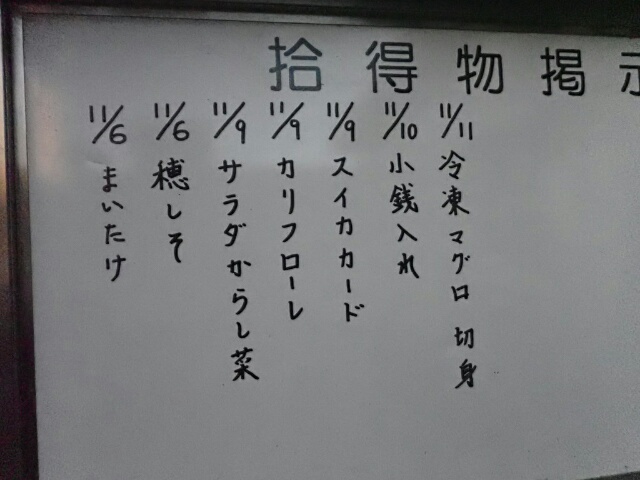 拾得物掲示
11/11 冷凍マグロ 切身
11/10 小銭入れ
11/9 スイカカード
11/9 カリフローレ
11/9 サラダからし菜
11/6 穂しそ
11/6 まいたけ